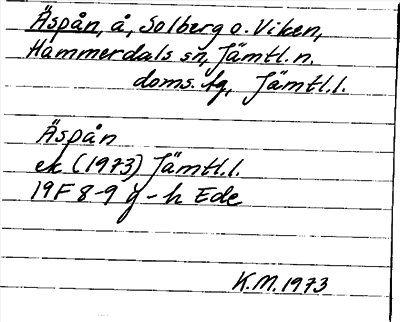 Äspån, å, Solberg o. Viken,
Hammerdals sn, Jämtl. n.
doms. fg, Jämtl. l.
Äspån
ek (1973) Jämtl. l.
19F 8-9 g-h Ede
K.M. 1973